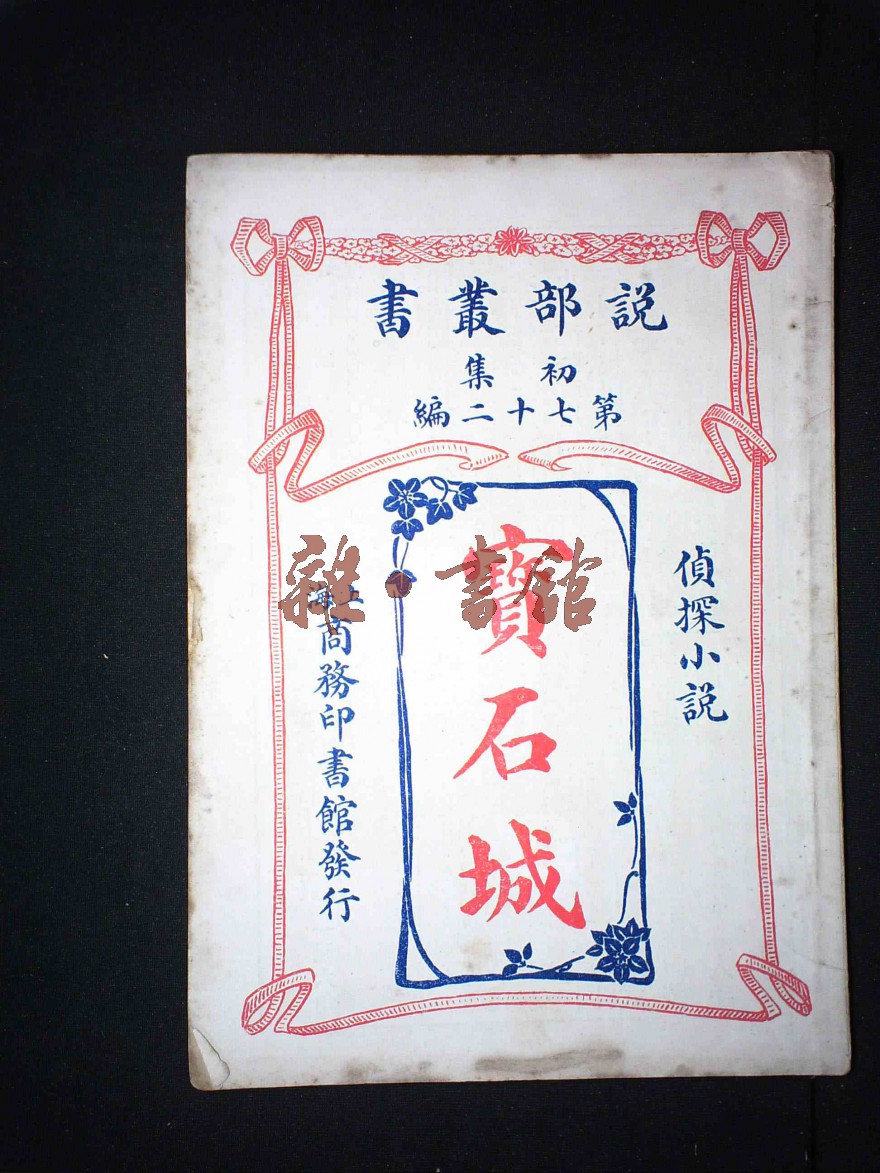 説部叢書
初集
第七十二編
偵探小説
寶石城
上海商務印書館發行
雜·書館